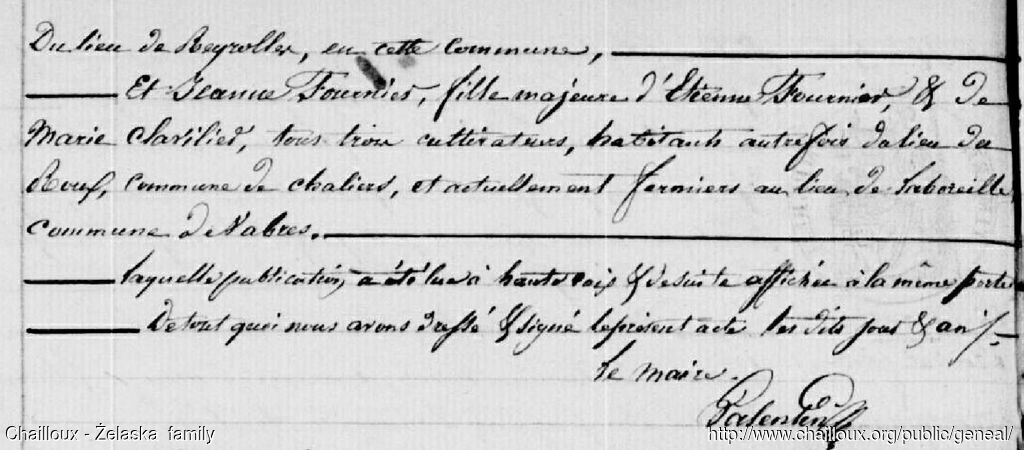 Du lieu de Reyrolles, en cette commune,
Et Jeanne Fournier, fille majeure d'Etienne Fournier, & de
Marie Clavilier, tous trois cultivateurs, habitants autrefois du lieu du
Rouf, commune de chaliers, et actuellement fermiers au lieu de Laboreille,
commune de Vabres.
Laquelle publication a été lue à haute voix & de suite affichée à la même porte
De tout quoi nous avons dressé & signé le présent acte les dits jour & an
Le maire.
Valentin
Chailloux - Żelaska family
http://www.chailloux.org/public/geneal/